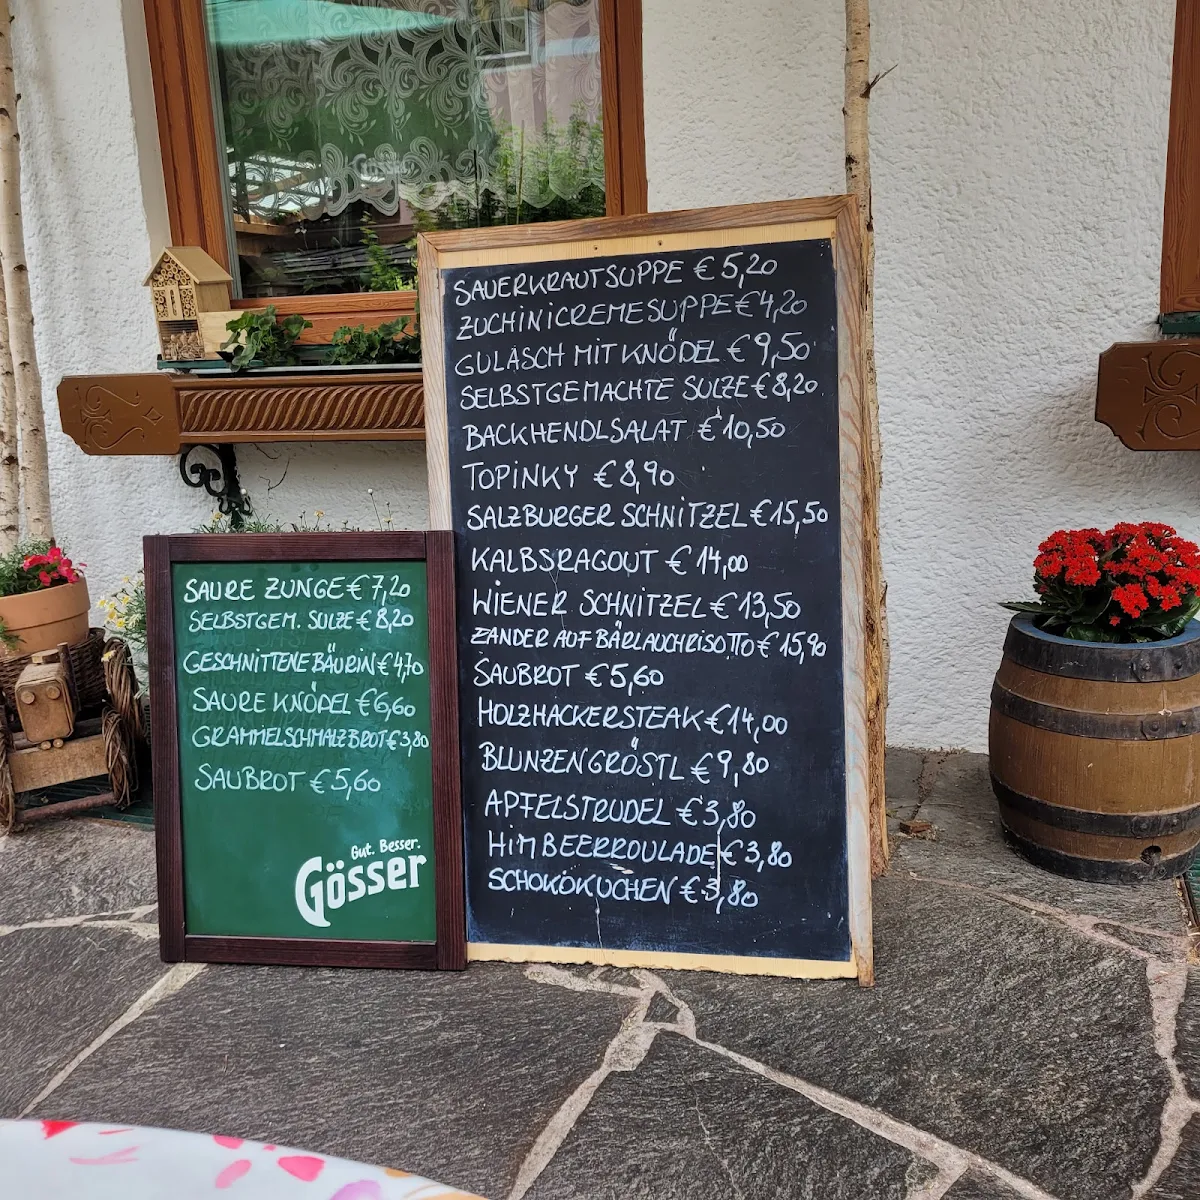 SAURE ZUNGE € 7,20
SELBSTGEM. SULZE € 8,20
GESCHNITTENE BÄURIN € 4,70
SAURE KNÖDEL € 6,60
GRAMMELSCHMALZBROT € 3,80
SAUBROT € 5,60
Gut. Besser.
Gösser
SAUERKRAUTSUPPE € 5,20
ZUCHINICREMESUPPE € 4,20
GULASCH MIT KNÖDEL € 9,50
SELBSTGEMACHTE SULZE € 8,20
BACKHENDLSALAT € 10,50
TOPINKY € 8,90
SALZBURGER SCHNITZEL € 15,50
KALBSRAGOUT € 14,00
WIENER SCHNITZEL € 13,50
ZANDER AUF BÄRLAUCHRISOTTO € 15,90
SAUBROT € 5,60
HOLZHACKERSTEAK € 14,00
BLUNZENGRÖSTL € 9,80
APFELSTRUDEL € 3,80
HIMBEERROULADE € 3,80
SCHOKOKUCHEN € 3,80